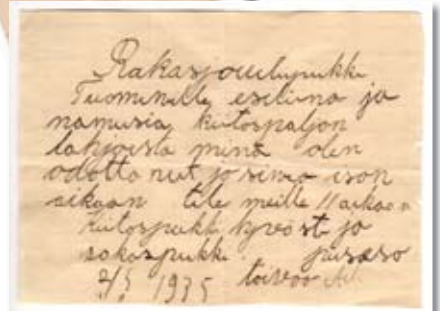 Rakasjoulupukki
Tuominulle esiliina ja
namusia kiitospaljon
lahjoista minä olen
odotta nut jo sinua ison
aikaan tile meille
kiitospukki hyvöst ja
sokospukki.
2/5 1935 toivoo